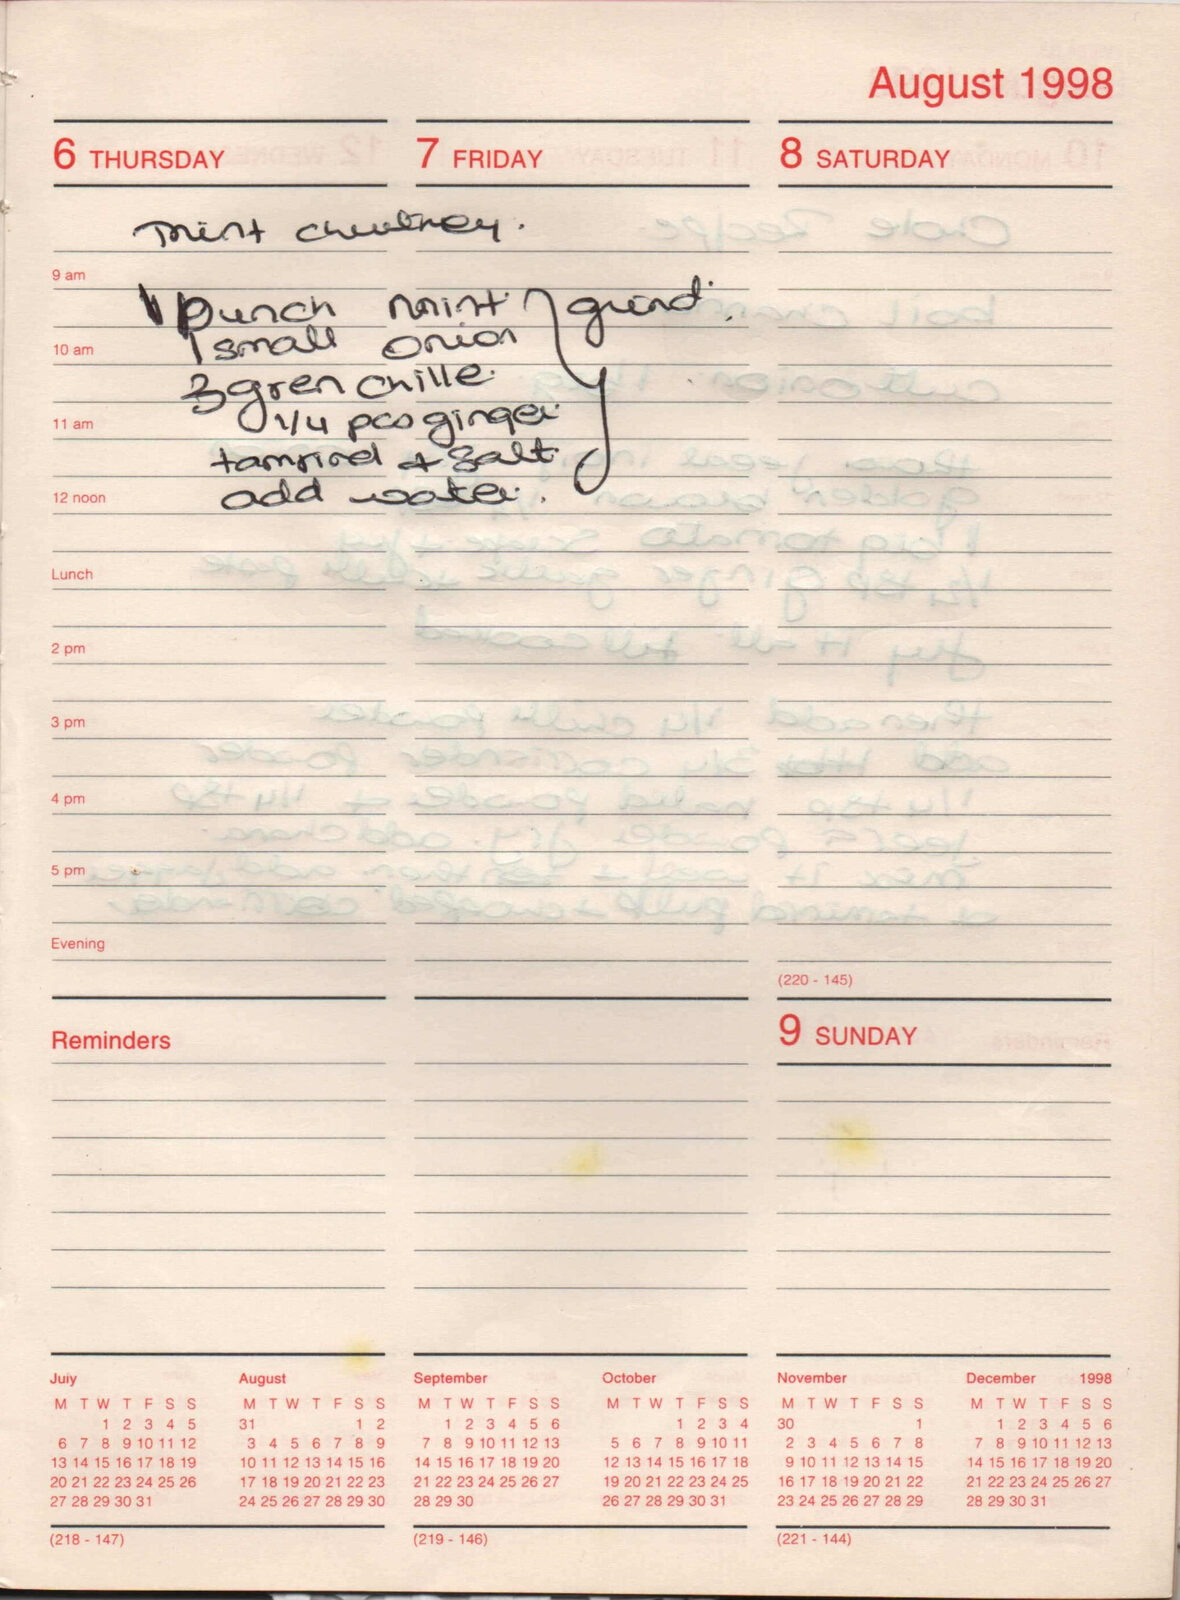 August 1998
6 THURSDAY
7 FRIDAY
8 SATURDAY
mint chutney.
9 am
1 bunch mint grind.
10 am
1 small onion
3 gren chille
11 am
1/4 pcs ginger
tamrind + salt
12 noon
add water.
Lunch
2 pm
3 pm
4 pm
5 pm
Evening
(220 - 145)
Reminders
9 SUNDAY
July
M T W T F S S
1 2 3 4 5
6 7 8 9 10 11 12
13 14 15 16 17 18 19
20 21 22 23 24 25 26
27 28 29 30 31
August
M T W T F S S
31 1 2
3 4 5 6 7 8 9
10 11 12 13 14 15 16
17 18 19 20 21 22 23
24 25 26 27 28 29 30
September
M T W T F S S
1 2 3 4 5 6
7 8 9 10 11 12 13
14 15 16 17 18 19 20
21 22 23 24 25 26 27
28 29 30
October
M T W T F S S
1 2 3 4
5 6 7 8 9 10 11
12 13 14 15 16 17 18
19 20 21 22 23 24 25
26 27 28 29 30 31
November
M T W T F S S
30 1
2 3 4 5 6 7 8
9 10 11 12 13 14 15
16 17 18 19 20 21 22
23 24 25 26 27 28 29
December 1998
M T W T F S S
1 2 3 4 5 6
7 8 9 10 11 12 13
14 15 16 17 18 19 20
21 22 23 24 25 26 27
28 29 30 31
(218 - 147)
(219 - 146)
(221 - 144)